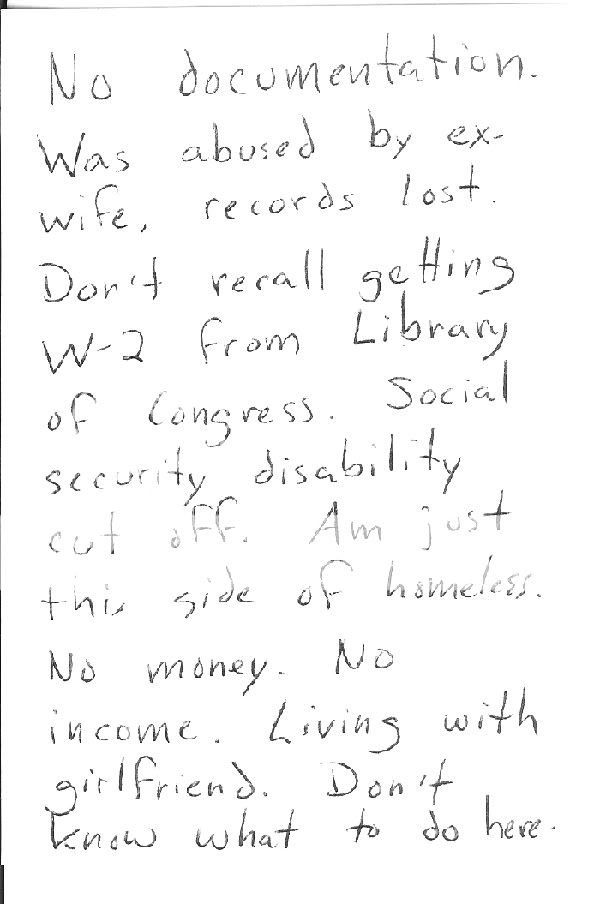 No documentation.
Was abused by ex-
wife, records lost.
Don't recall getting
W-2 from Library
of Congress. Social
security disability
cut off. Am just
this side of homeless.
No money. No
income. Living with
girlfriend. Don't
know what to do here.